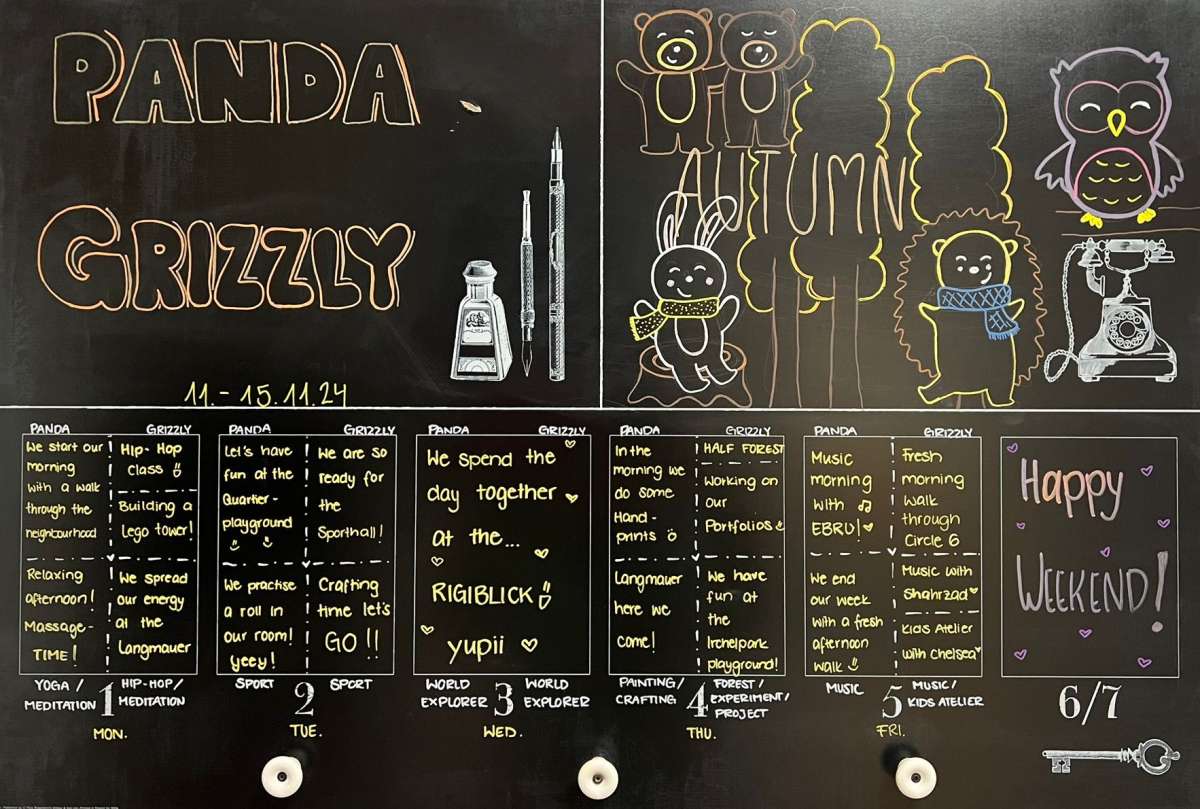 PANDA
GRIZZLY
11.-15.11.24
AUTUMN
PANDA
We start our
morning
with a walk
through the
neighbourhood
Relaxing
afternoon!
Massage-
TIME!
GRIZZLY
HIP-HOP
Class
Building a
Lego tower!
We spread
our energy
at the
Langmauer
YOGA/
MEDITATION
1
HIP-HOP/
MEDITATION
MON.
PANDA
Let's have
fun at the
Quartier-
playground
We practise
a roll in
our room!
yeey!
GRIZZLY
We are so
ready for
the
Sporthall!
Crafting
time let's
GO!!
SPORT
2
SPORT
TUE.
PANDA
GRIZZLY
We spend the
day together
at the...
RIGIBLICK
yupii
WORLD
EXPLORER
3
WORLD
EXPLORER
WED.
PANDA
In the
morning we
do some
Hand-
prints
Langmauer
here we
come!
GRIZZLY
HALF FOREST
Working on
our
Portfolios
We have
fun at
the
Irchelpark
playground!
PAINTING/
CRAFTING
4
FOREST/
EXPERIMENT/
PROJECT
THU.
PANDA
Music
morning
with
EBRU!
We end
our week
with a fresh
afternoon
walk
GRIZZLY
Fresh
morning
walk
through
Circle 6
Music with
Shahrzad
Kids Atelier
with Chelsea
MUSIC
5
MUSIC/
KIDS ATELIER
FRI.
Happy
WEEKEND!
6/7